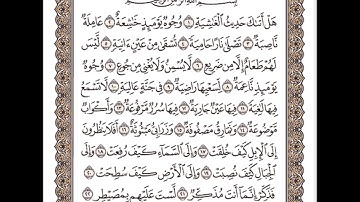 هَلْ أَتَىٰكَ حَدِيثُ ٱلْغَٰشِيَةِ ١ وُجُوهٌ يَوْمَئِذٍ خَٰشِعَةٌ ٢ عَامِلَةٌ
نَّاصِبَةٌ ٣ تَصْلَىٰ نَارًا حَامِيَةً ٤ تُسْقَىٰ مِنْ عَيْنٍ ءَانِيَةٍ ٥ لَّيْسَ
لَهُمْ طَعَامٌ إِلَّا مِن ضَرِيعٍ ٦ لَّا يُسْمِنُ وَلَا يُغْنِي مِن جُوعٍ ٧ وُجُوهٌ
يَوْمَئِذٍ نَّاعِمَةٌ ٨ لِّسَعْيِهَا رَاضِيَةٌ ٩ فِي جَنَّةٍ عَالِيَةٍ ١٠ لَّا تَسْمَعُ
فِيهَا لَٰغِيَةً ١١ فِيهَا عَيْنٌ جَارِيَةٌ ١٢ فِيهَا سُرُرٌ مَّرْفُوعَةٌ ١٣ وَأَكْوَابٌ
مَّوْضُوعَةٌ ١٤ وَنَمَارِقُ مَصْفُوفَةٌ ١٥ وَزَرَابِيُّ مَبْثُوثَةٌ ١٦ أَفَلَا يَنظُرُونَ
إِلَى ٱلْإِبِلِ كَيْفَ خُلِقَتْ ١٧ وَإِلَى ٱلسَّمَآءِ كَيْفَ رُفِعَتْ ١٨ وَإِلَى
ٱلْجِبَالِ كَيْفَ نُصِبَتْ ١٩ وَإِلَى ٱلْأَرْضِ كَيْفَ سُطِحَتْ ٢٠
فَذَكِّرْ إِنَّمَآ أَنتَ مُذَكِّرٌ ٢١ لَّسْتَ عَلَيْهِم بِمُصَيْطِرٍ ٢٢